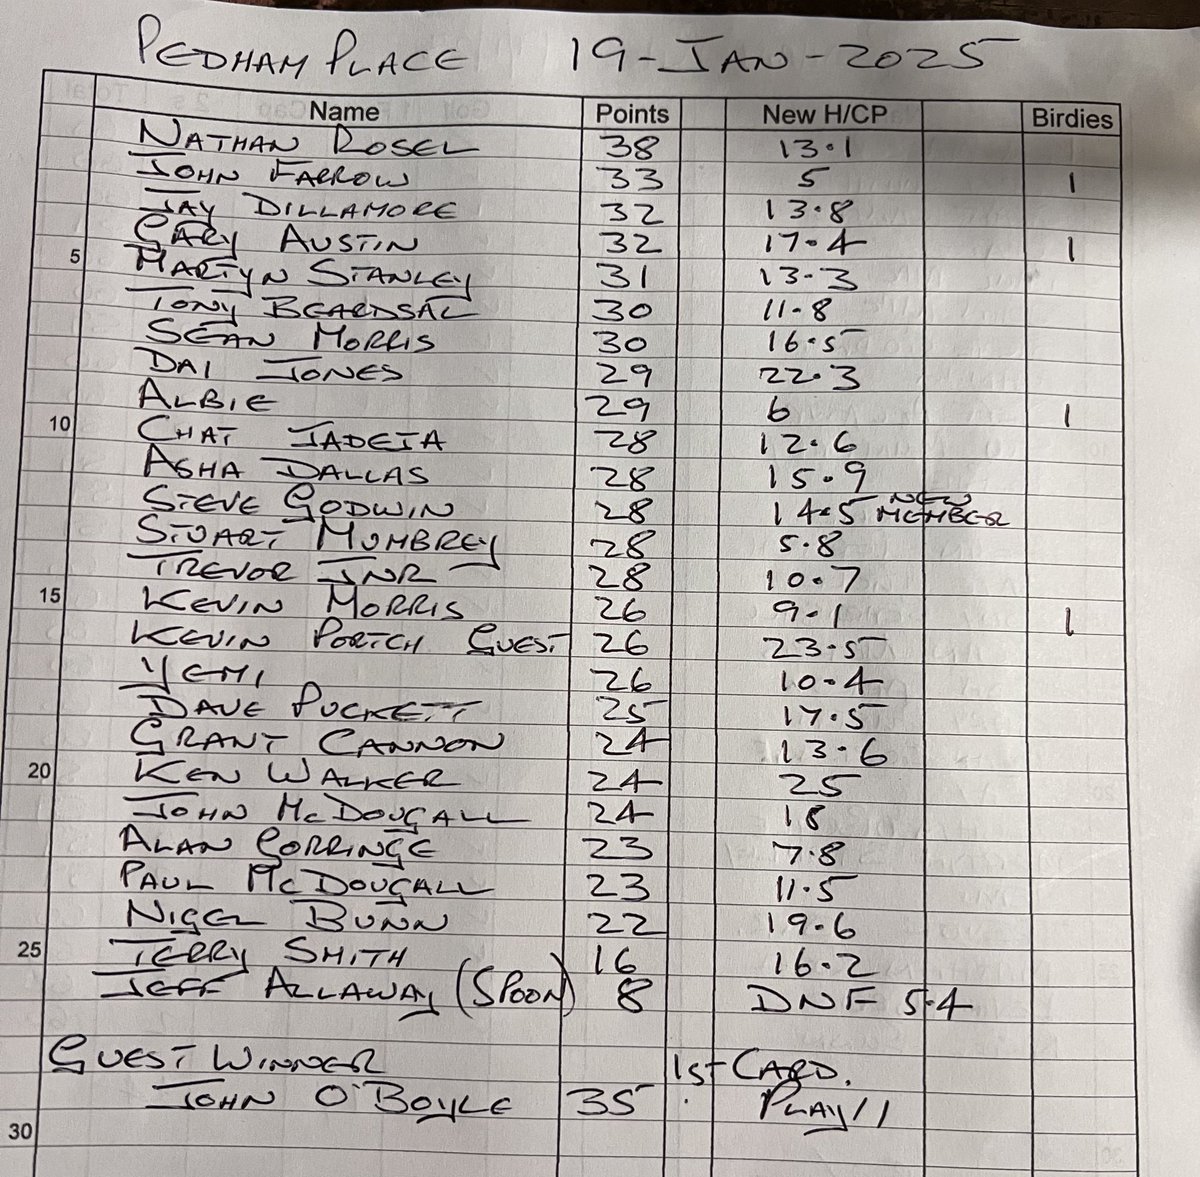 PEDHAM PLACE 19-JAN-2025
Name Points New H/CP Birdies
NATHAN ROSEL 38 13.1
JOHN FARROW 33 5 1
JAY DILLAMORE 32 13.8
GARY AUSTIN 32 17.4 1
5 MARTYN STANLEY 31 13.3
TONY BEARDSAL 30 11.8
SEAN MORRIS 30 16.5
DAI JONES 29 22.3
ALBIE 29 6 1
10 CHAT JADEJA 28 12.6
ASHA DALLAS 28 15.9
STEVE GODWIN 28 14.5 NEW MEMBER
STUART MUMBREY 28 5.8
TREVOR JNR 28 10.7
15 KEVIN MORRIS 26 9.1 1
KEVIN PORTCH GUEST 26 23.5
YEMI 26 10.4
DAVE PUCKETT 25 17.5
GRANT CANNON 24 13.6
20 KEN WALKER 24 25
JOHN McDOUGALL 24 18
ALAN GORRINGE 23 7.8
PAUL McDOUGALL 23 11.5
NIGEL BUNN 22 19.6
25 TERRY SMITH 16 16.2
JEFF ALLAWAY (SPOON) 8 DNF 5.4
GUEST WINNER 1st CARD.
JOHN O'BOYLE 35 PLAY//
30